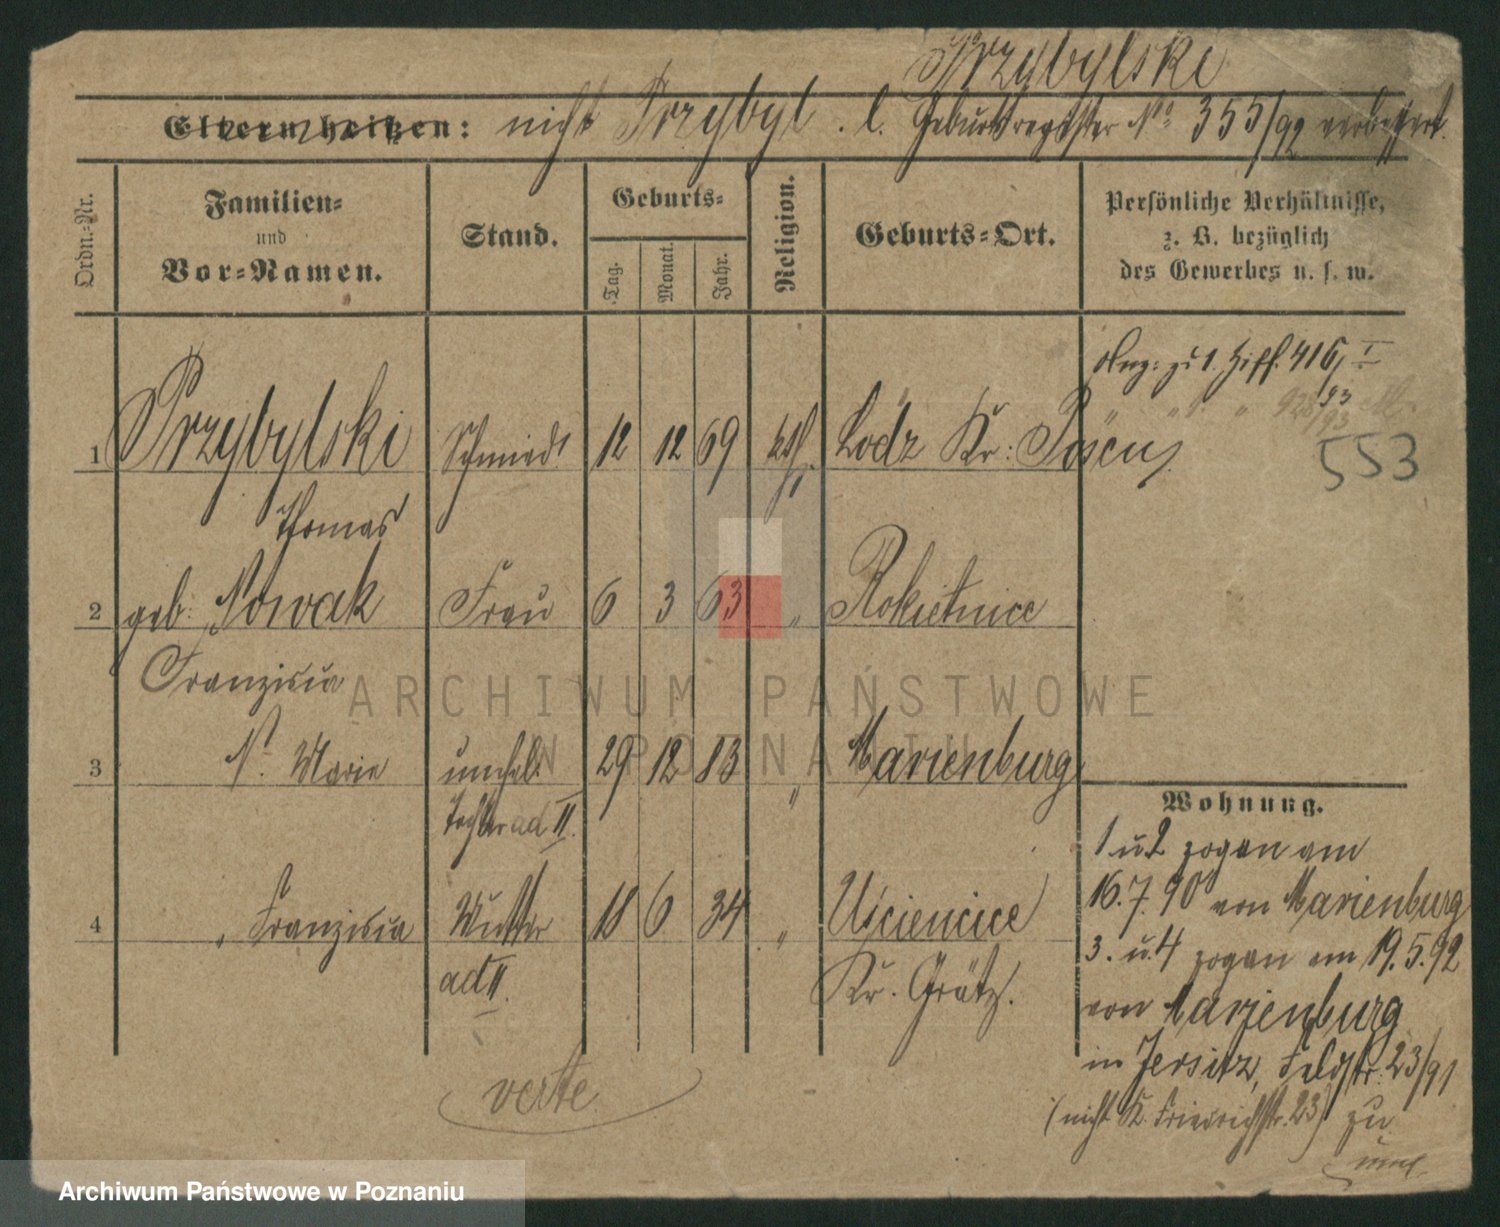 Przybylski
Eltern heißen: nicht Przybyl. l. Geburtsregister No 355/92 verbessert.
Ordn.-Nr.
Familien-
und
Vor-Namen.
Stand.
Geburts-
Tag.
Monat.
Jahr.
Religion.
Geburts-Ort.
Persönliche Verhältnisse,
z. B. bezüglich
des Gewerbes u. s. w.
zu 1. Ziff. 416/I
93
553
1 Przybylski Schmied 12 12 69 kath. Lodz Kr. Posen
Thomas
2 geb. Nowak Frau 6 3 63 " Rokietnice
Franziska
3 N. Marie unehel. 29 12 83 " Marienburg
Tochter ad II.
4 " Franziska Mutter 18 6 34 " Usciencice
ad II. Kr. Grätz.
Wohnung.
1 u. 2 zogen am
16.7.90 von Marienburg
3. u. 4 zogen am 19.5.92
von Marienburg
in Jersitz, Feldstr. 23/91
(nicht K. Friedrichstr. 23) zu
verte
ARCHIWUM PAŃSTWOWE
W POZNANIU
Archiwum Państwowe w Poznaniu